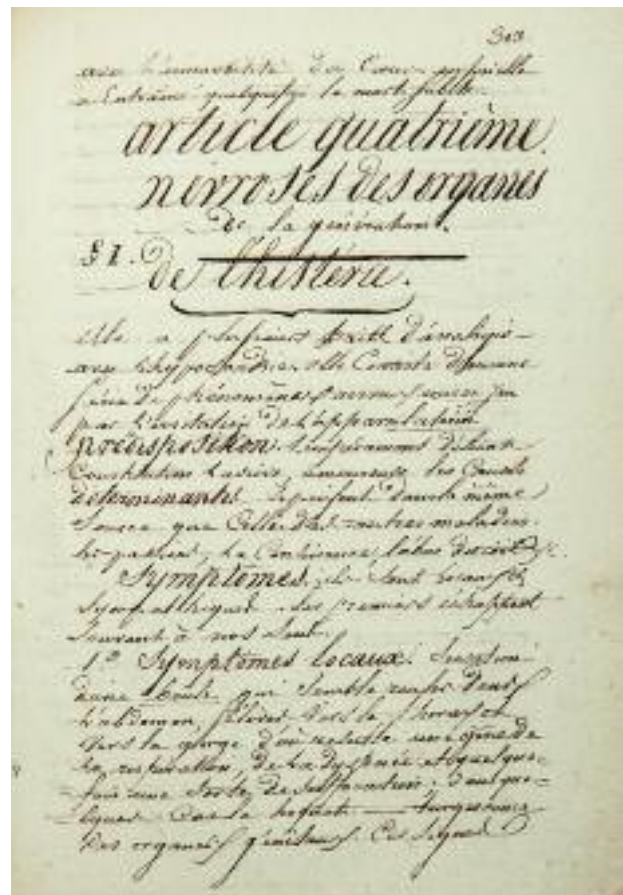 303
avec l'immobilité du Corps
a Entrainé quelquefois la mort subite.
article quatrième.
nevroses des organes
de la génération.
§ I.
de l'histérie.
Elle a plusieurs d'analogie
avec l'hypocondrie. elle Consiste dans une
série de phénomènes nerveux
par l'irritation de l'appareil utérin
prédisposition. tempérament
Constitution amoureuse, les Causes
déterminantes. dans la même
Source que Celles des autres maladies.
les passions, la Continence l'abus du coït &c.
Symptomes. ils Sont locaux et
Sympathiques. les premiers échappent
Souvent à nos Sens.
1º Symptomes locaux. Sensation
d'une boule qui Semble rouler Dans
l'abdomen, s'élever vers le thorax et
vers la gorge d'où résulte une gêne de
la respiration, de la dyspnée et quelque-
fois une Sorte de Suffocation; Dans que-
lques Cas le hoquet — turgescence
des organes génitaux. Ces Signes